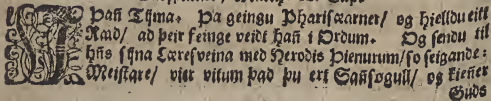 J Þañ Tijma. Þa geingu Pharisæarner/ og hielldu eitt
Ræd/ ad þeir feinge veidt hañ i Ordum. Og sendu til
hñs sijna Læresveina med Herodis Þienurum/ so seigande:
Meistare/ vier vitum þad þu ert Sañsøgull/ og kiener
Guds